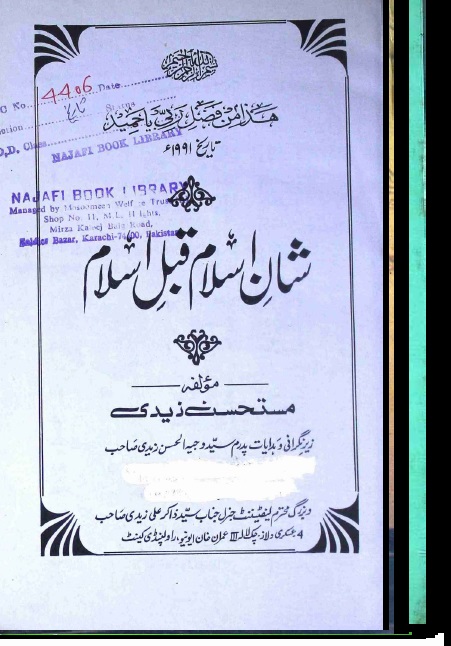 بسم الله الرحمن الرحيم
4406 Date
C No
Status
ction
D,D, Class
NAJAFI BOOK LIBRARY
هٰذا من فضل ربی یا حمید
تاریخ ۱۹۹۱ء
NAJAFI BOOK LIBRARY
Managed by Masoomeen Welfare Trust
Shop No. 11, M.L. Heights,
Mirza Kaleej Baig Road,
Soldier Bazar, Karachi-74400, Pakistan
شانِ اسلام قبلِ اسلام
مؤلفہ
مستحسن زیدی
زیرِ نگرانی و ہدایات پدرم سید وجیہ الحسن زیدی صاحب
و بزرگ محترم لیفٹیننٹ جنرل جناب سید ذاکر علی زیدی صاحب
4 عسکری ولاز، چکلالہ III عمران خان ایونیو، راولپنڈی کینٹ